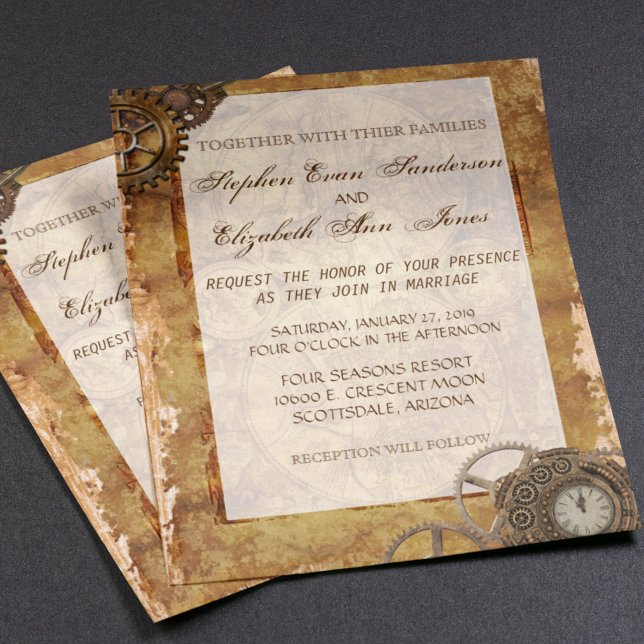 TOGETHER WITH THIER FAMILIES
Stephen Evan Sanderson
AND
Elizabeth Ann Jones
REQUEST THE HONOR OF YOUR PRESENCE
AS THEY JOIN IN MARRIAGE
SATURDAY, JANUARY 27, 2019
FOUR O'CLOCK IN THE AFTERNOON
FOUR SEASONS RESORT
10600 E. CRESCENT MOON
SCOTTSDALE, ARIZONA
RECEPTION WILL FOLLOW
TOGETHER WITH
Stephen
Elizabeth
REQUEST
AS